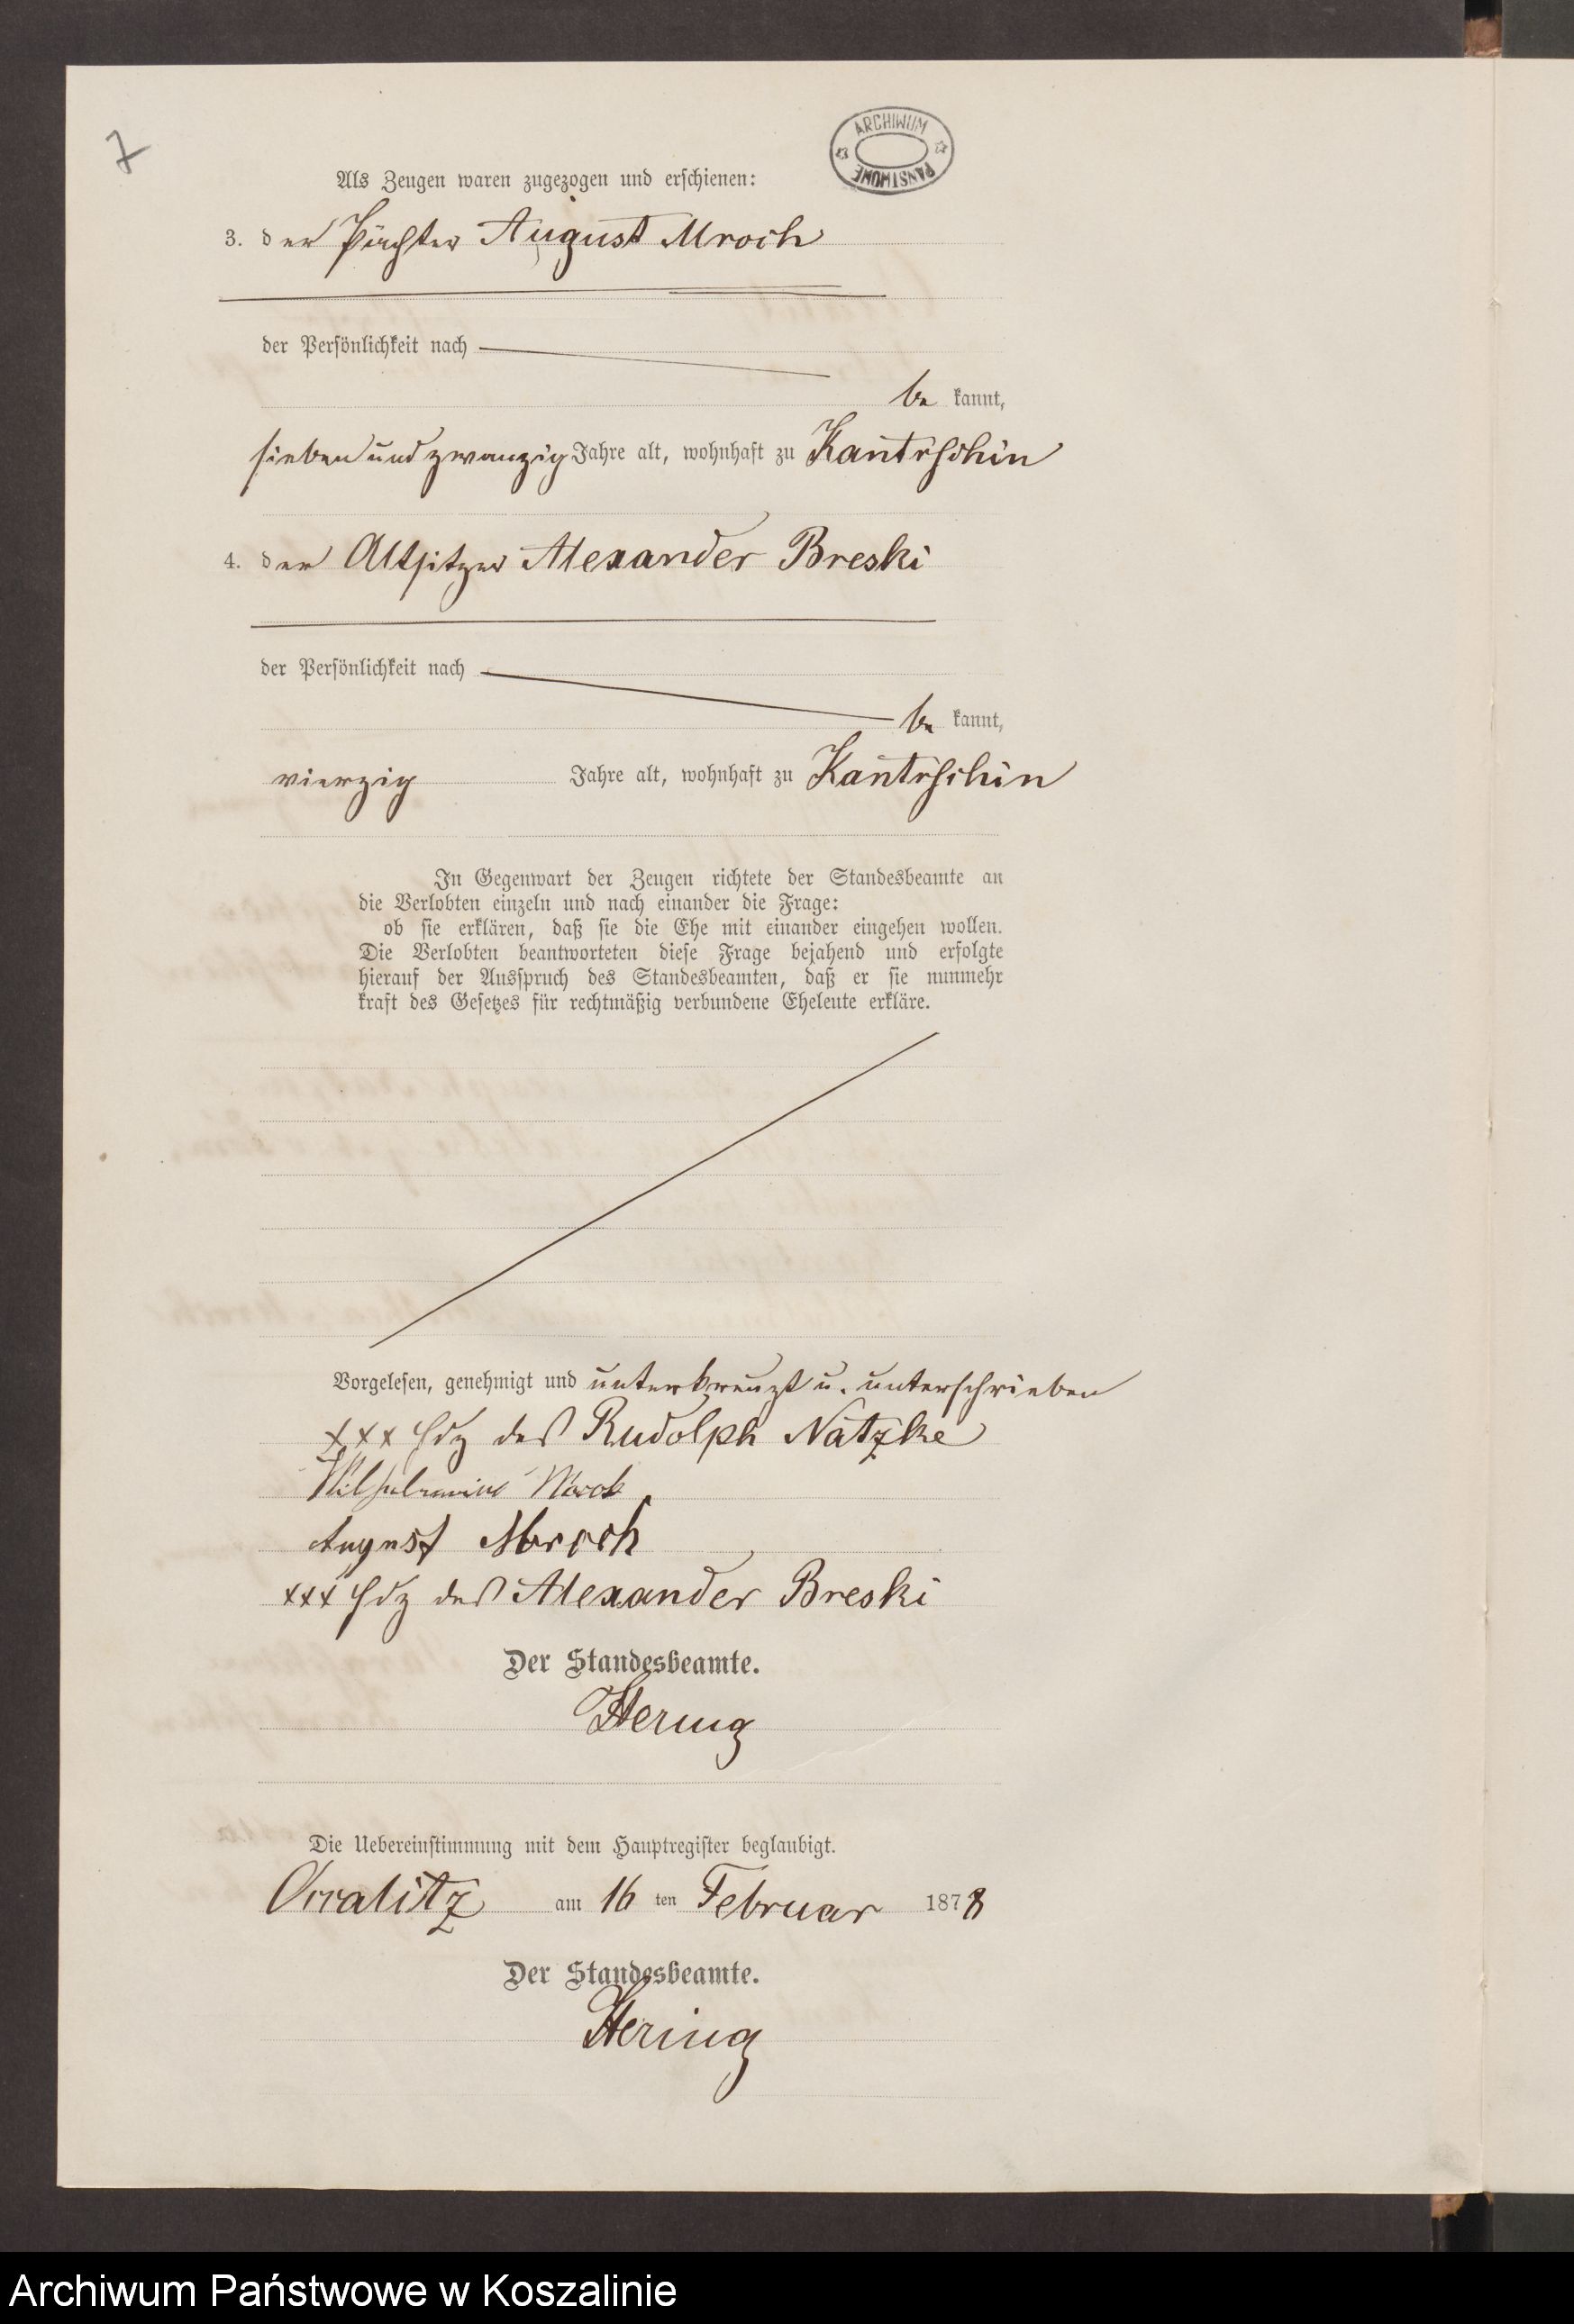 7
ARCHIWUM PAŃSTWOWE
Als Zeugen waren zugezogen und erschienen:
3. der Pächter August Mroch
der Persönlichkeit nach
be kannt,
sieben und zwanzig Jahre alt, wohnhaft zu Kantrschin
4. der Altsitzer Alexander Breski
der Persönlichkeit nach
be kannt,
vierzig Jahre alt, wohnhaft zu Kantrschin
In Gegenwart der Zeugen richtete der Standesbeamte an
die Verlobten einzeln und nach einander die Frage:
ob sie erklären, daß sie die Ehe mit einander eingehen wollen.
Die Verlobten beantworteten diese Frage bejahend und erfolgte
hierauf der Ausspruch des Standesbeamten, daß er sie nunmehr
kraft des Gesetzes für rechtmäßig verbundene Eheleute erkläre.
Vorgelesen, genehmigt und unterkreuzt u. unterschrieben
xxx Hdz des Rudolph Natzke
Wilhelmine Mroch
August Mroch
xxx Hdz des Alexander Breski
Der Standesbeamte.
Hering
Die Uebereinstimmung mit dem Hauptregister beglaubigt.
am 16 ten Februar 1878
Der Standesbeamte.
Hering
Archiwum Państwowe w Koszalinie